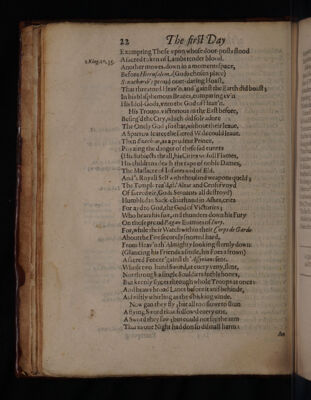 22 The first Day
Exempting Those upon whose door-posts stood
A sacred token of Lambs tender bloud.
Another mowes down in a moments space,
Before Hierusalem (Gods chosen place)
proud out-daring Hoast,
That threatned Heav'n, and 'gainst the Earth did boast;
In his blasphemous Braves, comparing ev'n
His Idol-Gods, unto the God of heav'n.
His Troups, victorious in the East before,
Besieg'd the City, which did sole adore
The Onely God; so that, without their leave,
A Sparrow scarce the sacred Walls could leave.
Then as a prudent Prince,
Poizing the danger of these sad events
(His Subjects thrall, his Cities wofull Flames,
His children death, the rape of noble Dames,
The Massacre of Infants and of Eld,
And's Royall Self with thousand weapons queld;
The Temple raz'd, th' Altar and Censer voyd
Of sacred use, Gods Servants all destroyd)
Humbled in Sack-cloath and in Ashes, cries
For ayd to God, the God of Victories;
Who hears his sute, and thunders down his Fury
On those proud Pagan Enemies of Jury.
For, while their Watch within their Corps de Garde
About the Fire securely snorted hard,
From Heav'n th' Almighty looking sternly down
(Glancing his Friends a smile, his Foes a frown)
A sacred Fencer 'gainst th' Assyrians sent,
Whose two-hand Sword, at every veny, slent,
Not through a single Souldiers feeble bones,
But keenly slyces through whole Troops at once:
And heaws broad Lanes before it and behinde,
As swiftly whirling as the whisking winde.
Now gan they fly; but all too slowe to shun
A flying Sword that follow'd every one.
A Sword they saw; but could not see the arm
That in one Night had don so dismall harm: